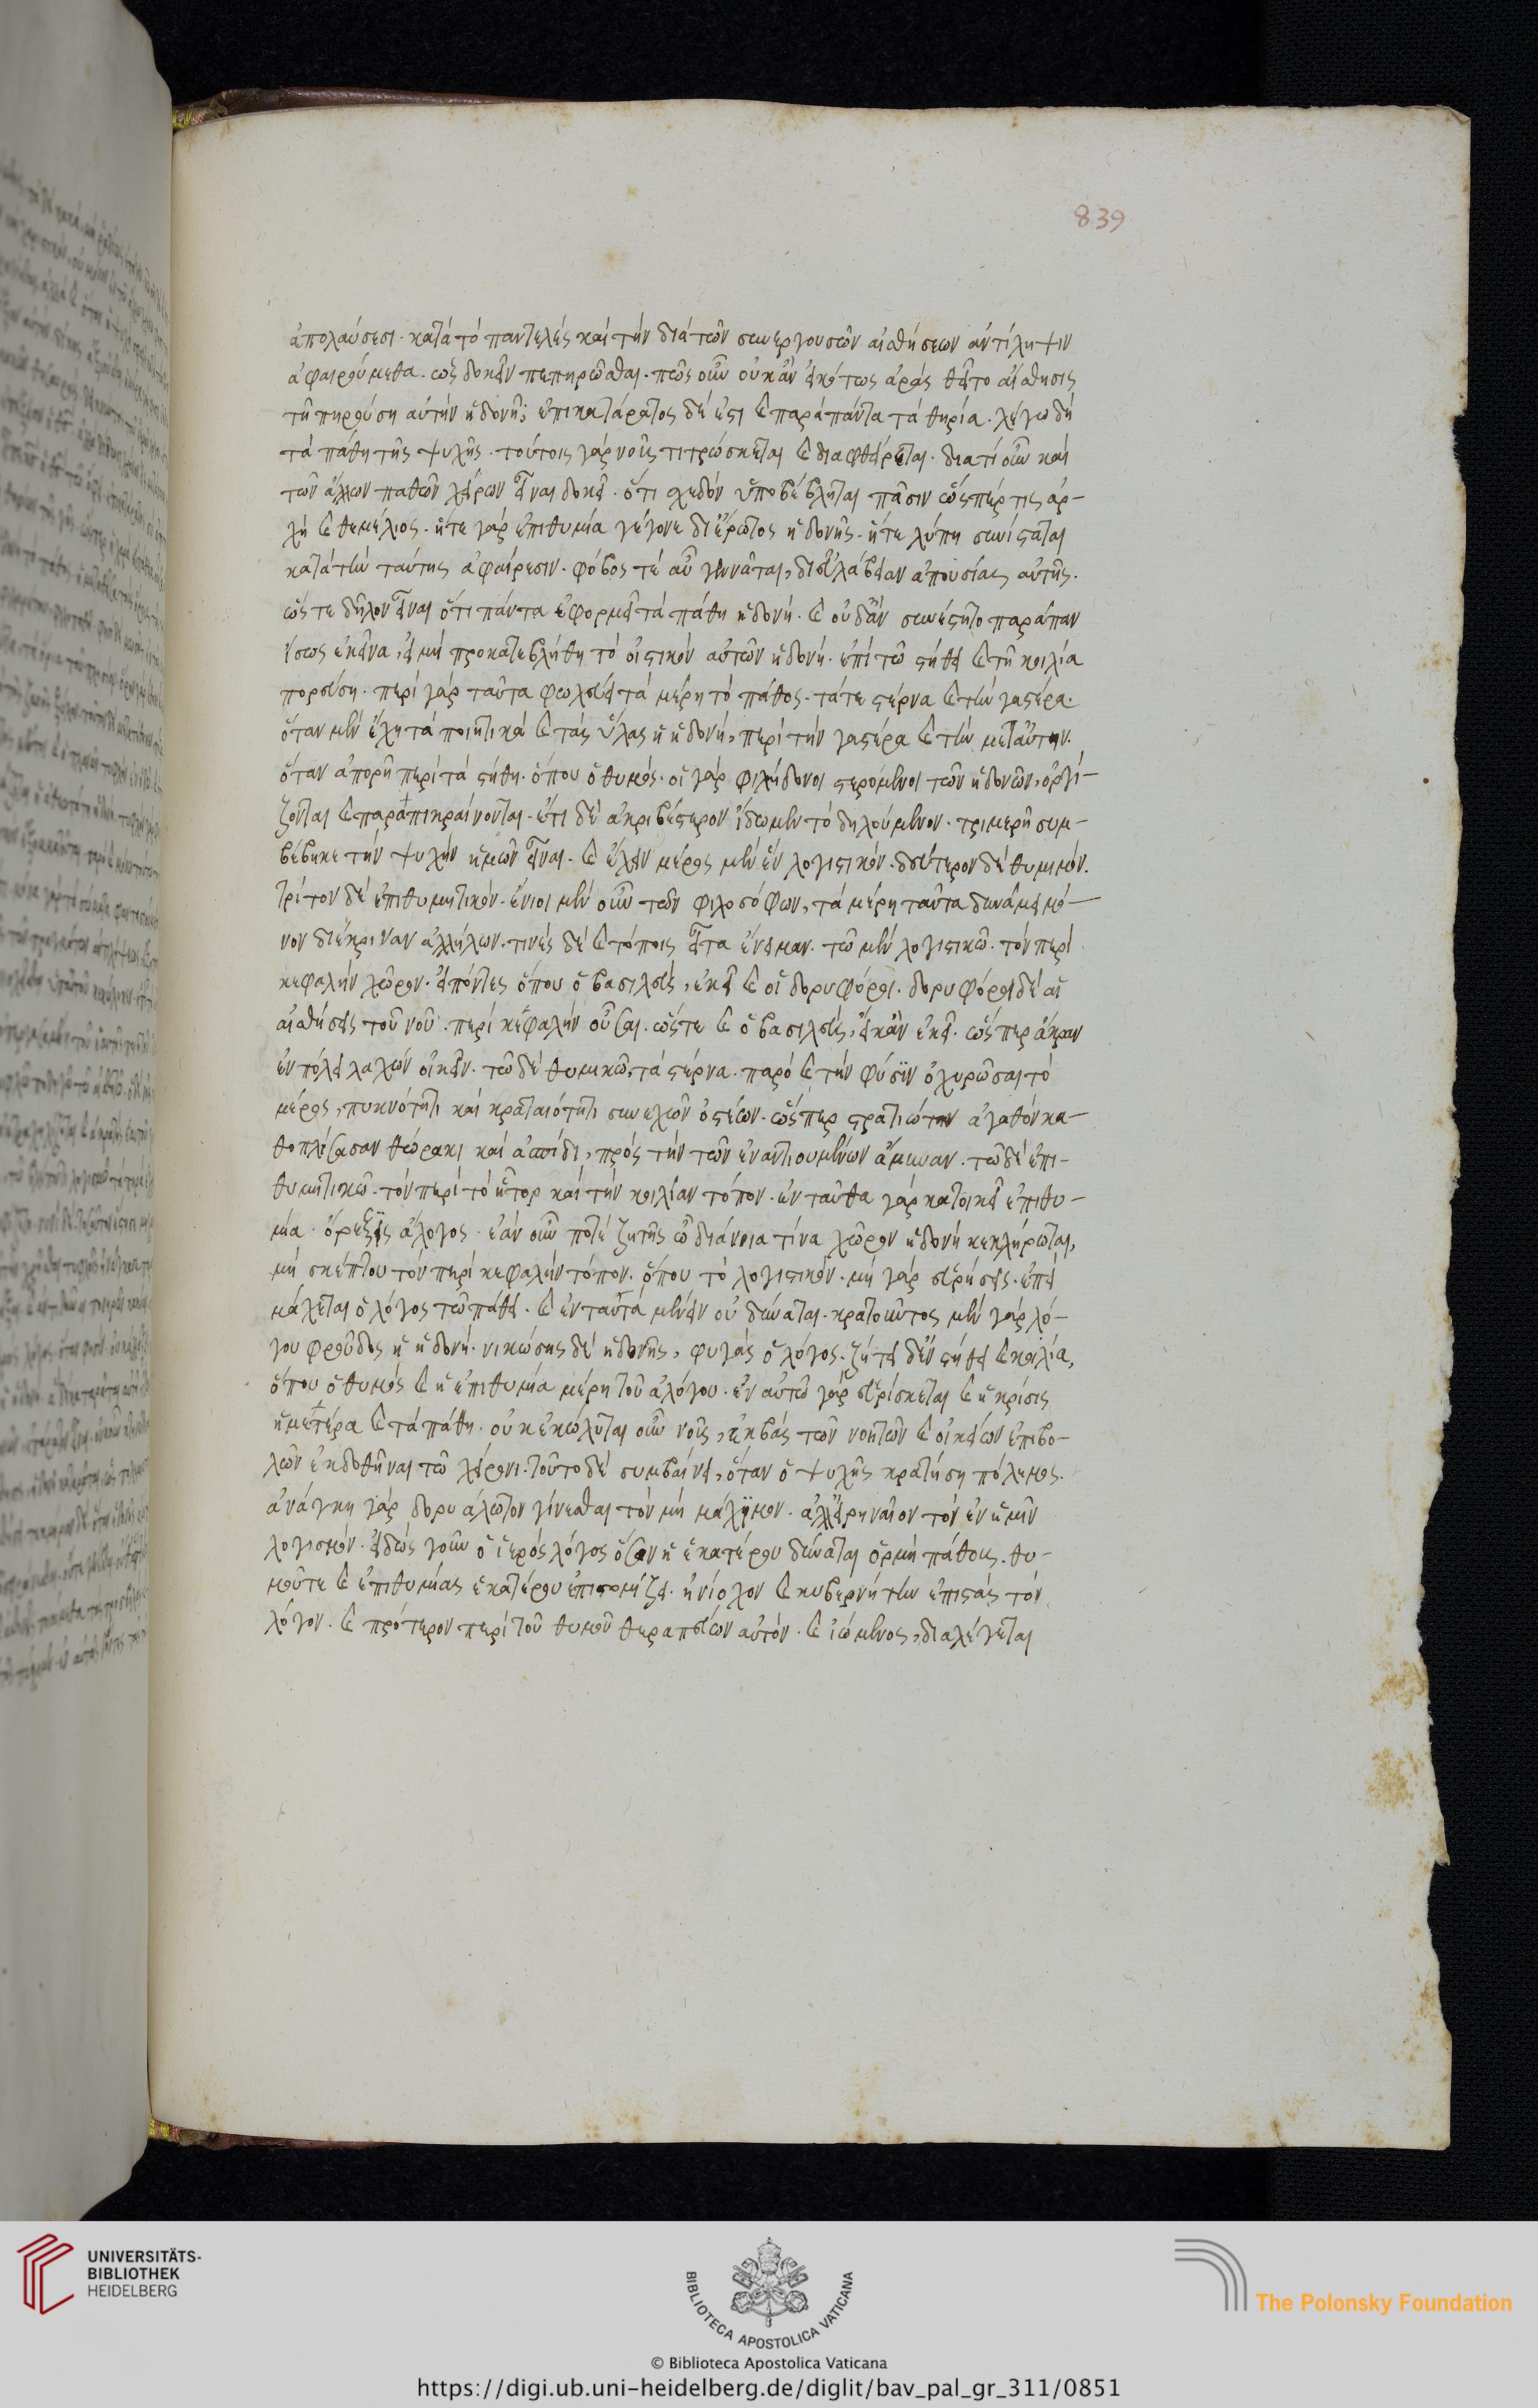 839
ἀπολαύσεσι· κατὰ τὸ παντελὲς καὶ τὴν διὰ τῶν συνεργουσῶν αἰσθήσεων ἀντίληψιν
ἀφαιρούμεθα· ὡς δοκεῖν πεπηρῶσθαι· πῶς οὖν οὐκ ἂν εἰκότως ἀρὰς θεῖτο αἴσθησις
τῇ πηρούσῃ αὐτὴν ἡδονῇ; ἐπικατάρατος δέ ἐστι καὶ παρὰ πάντα τὰ θηρία· λέγω δὴ
τὰ πάθη τῆς ψυχῆς· τούτοις γὰρ νοῦς τιτρώσκεται καὶ διαφθείρεται· διατί οὖν καὶ
τῶν ἄλλων παθῶν χείρων εἶναι δοκεῖ· ὅτι σχεδὸν ὑποβέβληται πᾶσιν ὥσπέρ τις ἀρ-
χὴ καὶ θεμέλιος· ἥτε γὰρ ἐπιθυμία γέγονε δι' ἔρωτος ἡδονῆς· ἥτε λύπη συνίσταται
κατὰ τὴν ταύτης ἀφαίρεσιν· φόβος τὲ αὖ γεννᾶται, δι' εὐλάβειαν ἀπουσίας αὐτῆς·
ὥστε δῆλον εἶναι ὅτι πάντα ἐφορμεῖ τὰ πάθη ἡδονῇ· καὶ οὐδ' ἂν συνέστητο παράπαν
ἴσως ἐκεῖνα, εἰ μὴ προκατεβλήθη τὸ οἰστικὸν αὐτῶν ἡδονή· ἐπὶ τῷ στήθει καὶ τῇ κοιλίᾳ
πορεύσῃ· περὶ γὰρ ταῦτα φωλεύει τὰ μέρη τὸ πάθος· τά τε στέρνα καὶ τὴν γαστέρα·
ὅταν μὲν ἔχῃ τὰ ποιητικὰ καὶ τὰς ὕλας ἡ ἡδονή, περὶ τὴν γαστέρα καὶ τὴν μετ' αὐτὴν·
ὅταν ἀπορῇ περὶ τὰ στήθη· ὅπου ὁ θυμός· οἱ γὰρ φιλήδονοι στερόμενοι τῶν ἡδονῶν, ὀργί-
ζονται καὶ παραπικραίνονται· ἔτι δὲ ἀκριβέστερον ἴδωμεν τὸ δηλούμενον· τριμερῆ συμ-
βέβηκε τὴν ψυχὴν ἡμῶν εἶναι· καὶ ἔχειν μέρος μὲν ἓν λογιστικόν· δεύτερον δὲ θυμικόν·
τρίτον δὲ ἐπιθυμητικόν· ἔνιοι μὲν οὖν τῶν φιλοσόφων, τὰ μέρη ταῦτα δυνάμει μό-
νον διέκριναν ἀλλήλων· τινὲς δὲ καὶ τόποις εἶτα ἔνειμαν· τῷ μὲν λογιστικῷ· τὸν περὶ
κεφαλὴν χῶρον· εἰπόντες ὅπου ὁ βασιλεύς, ἐκεῖ καὶ οἱ δορυφόροι· δορυφόροι δὲ αἱ
αἰσθήσεις τοῦ νοῦ· περὶ κεφαλὴν οὖσαι· ὥστε καὶ ὁ βασιλεύς, εἴη κἂν ἐκεῖ· ὥσπερ ἄκραν
ἐν πόλει λαχὼν οἰκεῖν· τῷ δὲ θυμικῷ, τὰ στέρνα· παρὸ καὶ τὴν φύσιν ὀχυρῶσαι τὸ
μέρος, πυκνότητι καὶ κραταιότητι συνεχῶν ὀστέων· ὥσπερ στρατιώτην ἀγαθὸν κα-
θοπλίσασαν θώρακι καὶ ἀσπίδι, πρὸς τὴν τῶν ἐναντιουμένων ἄμυναν· τῷ δὲ ἐπι-
θυμητικῷ· τὸν περὶ τὸ ἦτορ καὶ τὴν κοιλίαν τόπον· ἐνταῦθα γὰρ κατοικεῖ ἐπιθυ-
μία· ὄρεξις ἄλογος· ἐὰν οὖν ποτὲ ζητῇς ὦ διάνοια τίνα χῶρον ἡδονὴ κεκλήρωται,
μὴ σκέπτου τὸν περὶ κεφαλὴν τόπον· ὅπου τὸ λογιστικόν· μὴ γὰρ εὑρήσεις· ἐπεὶ
μάχεται ὁ λόγος τῷ πάθει· καὶ ἐν ταυτᾷ μένειν οὐ δύναται· κρατοῦντος μὲν γὰρ λό-
γου φροῦδος ἡ ἡδονή· νικώσης δὲ ἡδονῆς, φυγὰς ὁ λόγος· ζήτει δ' ἐν στήθει καὶ κοιλίᾳ,
ὅπου ὁ θυμὸς καὶ ἡ ἐπιθυμία μέρη τοῦ ἀλόγου· ἐν αὐτῷ γὰρ εὑρίσκεται καὶ ἡ κρίσις
ἡμετέρα καὶ τὰ πάθη· οὐκ ἐκώλυται οὖν νοῦς, ἐκβὰς τῶν νοητῶν καὶ οἰκείων ἐπιβο-
λῶν ἐκδοθῆναι τῷ χείρονι· τοῦτο δὲ συμβαίνει, ὅταν ὁ ψυχῆς κρατήσῃ πόλεμος·
ἀνάγκη γὰρ δορυάλωτον γίνεσθαι τὸν μὴ μάχιμον· ἀλλ' εἰρηναῖον τὸν ἐν ἡμῖν
λογισμόν· εἰδὼς γοῦν ὁ ἱερὸς λόγος ὅσον ἡ ἑκατέρου δύναται ὁρμὴ πάθους· θυ-
μοῦ τε καὶ ἐπιθυμίας ἑκατέρου ἐπιστομίζει· ἡνίοχον καὶ κυβερνήτην ἐπιστὰς τὸν
λόγον· καὶ πρότερον περὶ τοῦ θυμοῦ θεραπεύων αὐτόν· καὶ ἰώμενος, διαλέγεται
UNIVERSITÄTS-
BIBLIOTHEK
HEIDELBERG
BIBLIOTECA APOSTOLICA VATICANA
The Polonsky Foundation
© Biblioteca Apostolica Vaticana
https://digi.ub.uni-heidelberg.de/diglit/bav_pal_gr_311/0851